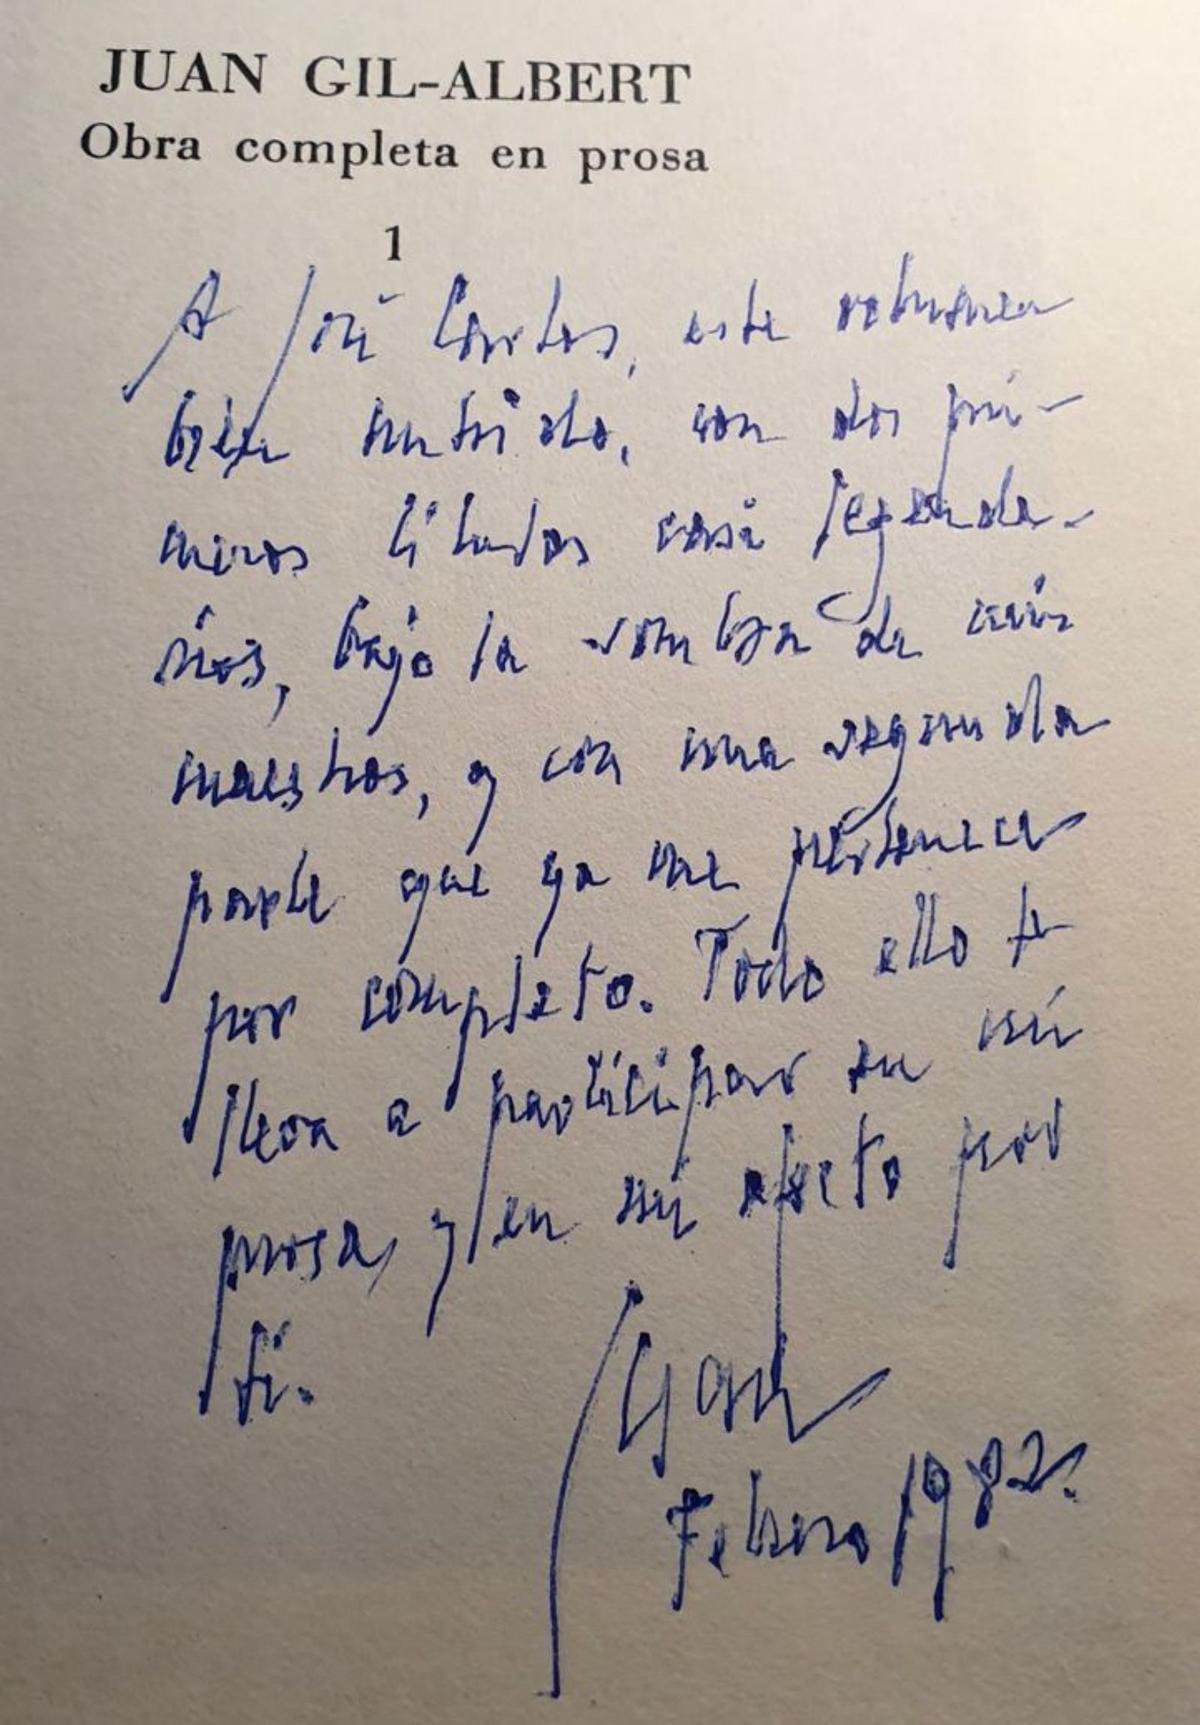 JUAN GIL-ALBERT
Obra completa en prosa
1
A José Carlos, este volumen
bien nutrido, con dos pri-
meros titulados casi legenda-
rios, bajo la sombra de mis
maestros, y con una segunda
parte que ya me pertenece
por completo. Todo ello te
lleva a participar en mi
prosa, y en mi afecto por
ti.
Juan
Febrero 1982.